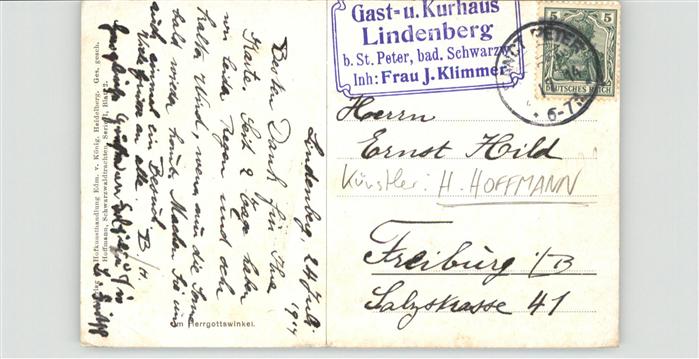 Gast- u. Kurhaus
Lindenberg
b. St. Peter, bad. Schwarzw.
Inh: Frau J. Klimmer
5 5
DEUTSCHES REICH
ST. PETER
6-7
Herrn
Ernst Hild
Künstler: H. HOFFMANN
Freiburg i/B
Salzstrasse 41
Lindenberg, 24 Juli
1914
Besten Dank für Ihre
Karte. Seit 2 Tage haben
wir leider Regen und
kalten Wind, wenn aus die Sonne
bald wieder kommt. Machen Sie uns
auch einmal ein Besuch
Viele Grüsse an alle. B/H.
Hofkunsthandlung Edm. v. König, Heidelberg. Ges. gesch.
Hoffmann, Schwarzwaldtrachten Serie I, Blatt 2.
Am Herrgottswinkel.